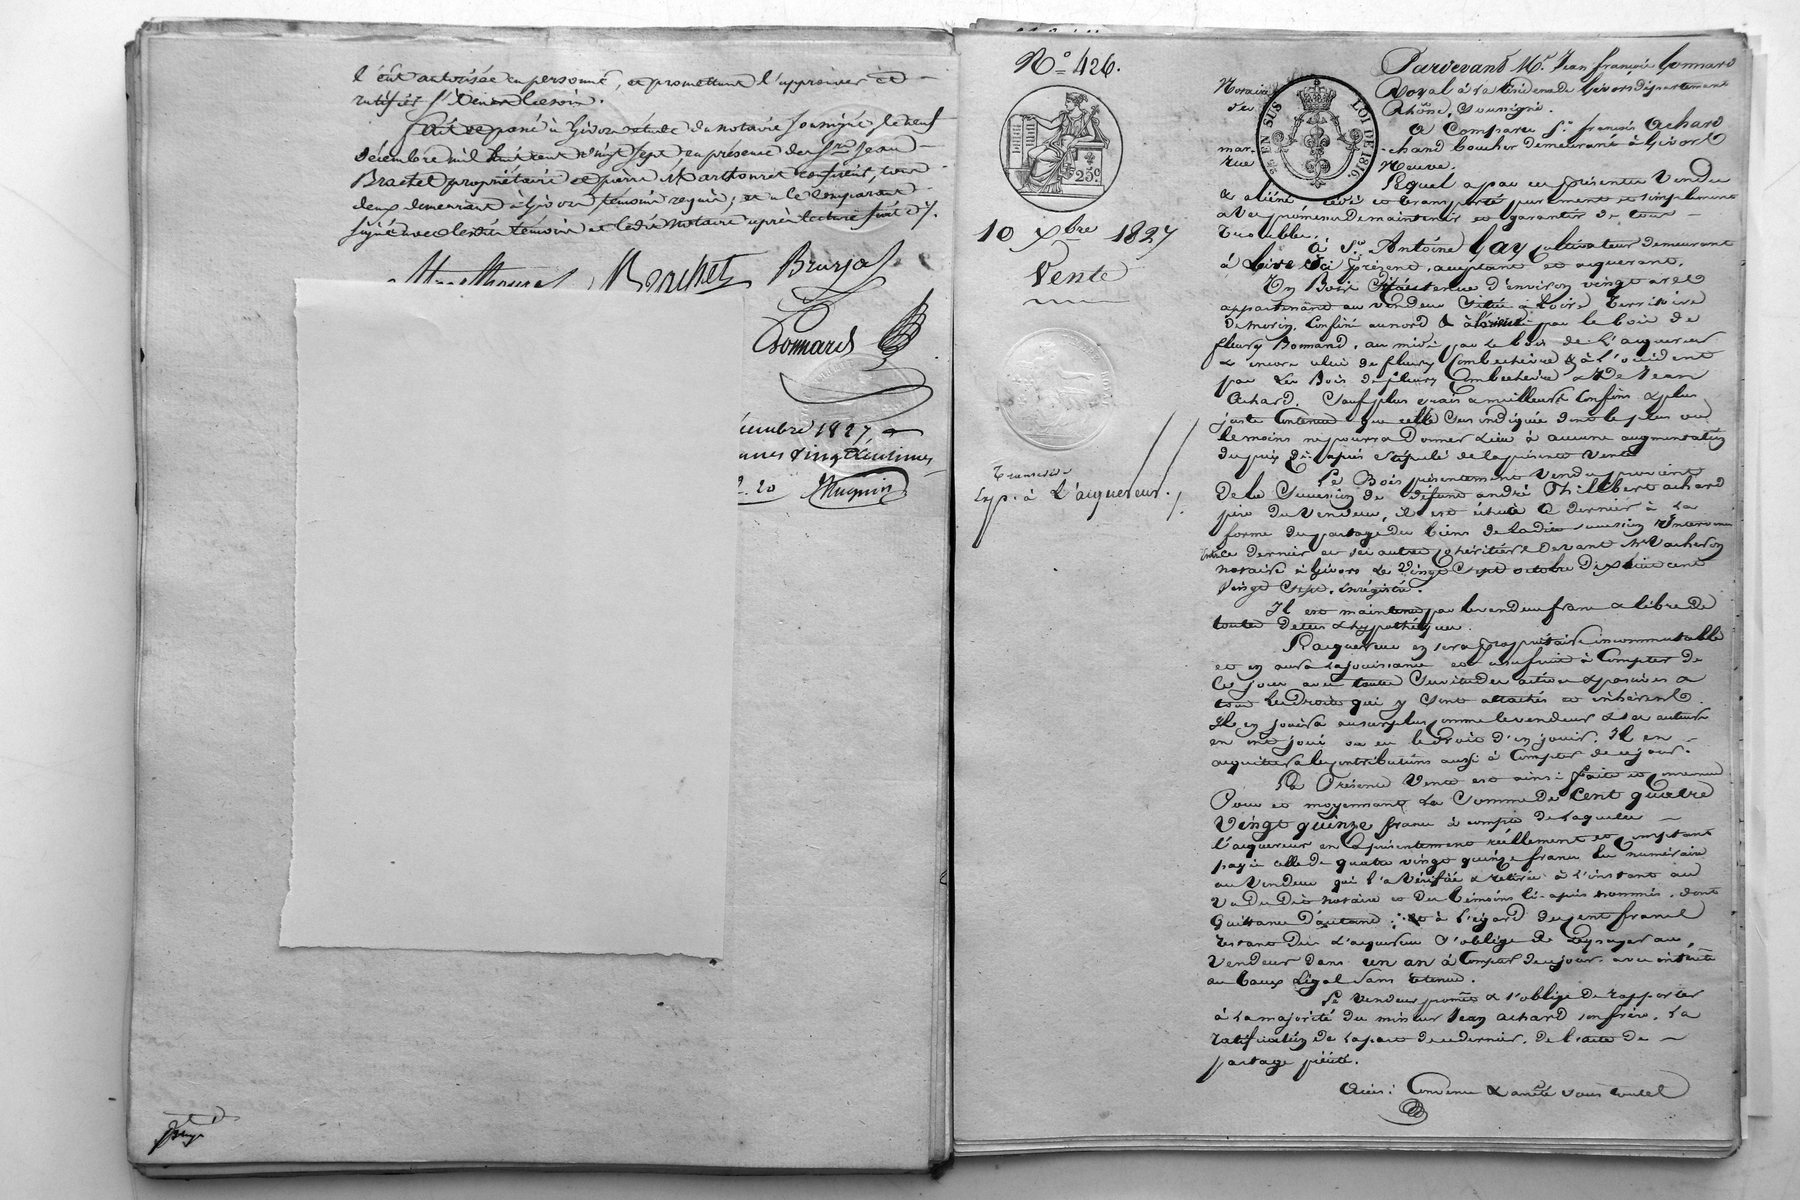 l'eut autorisée en personne, et promettant l'approuver et
ratifier s'il en est besoin.
Fait et passé à Givors étude du notaire soussigné le neuf
décembre mil huit cent vingt sept en présence des Srs Jean
Brachet propriétaire et pierre Marthouret confiseur, tous
deux demeurant à Givors témoins requis; et a le comparant
signé avec lesdits témoins et ledit notaire après lecture faite
Marthouret Brachet
Gonnard
cembre 1827
vingt centimes
2.20
N.° 426.
10 Xbre 1827
Vente
Exp. à L'acquereur.
25c.
EN SUS
LOI DE 1816.
Pardevant Me. Jean françois Gonnard
Notaire Royal à la résidence de Givors département
du Rhône, soussigné.
A Comparu Sr. françois Achard
mar-chand boucher demeurant à Givors
rue Neuve.
Lequel a par ces présentes Vendu
& aliéné cédé et transporté purement et simplement
avec promesse de maintenir et garantir de tous
troubles.
à Sr. Antoine Gay Cultivateur demeurant
à Loire ici présent, acceptant et acquerant.
Un Bois Contenue d'environ vingt ares
appartenant au vendeur situé à Loire territoire
de morin, Confiné au nord & à par le bois de
fleury Bonnand, au midi par le bois de l'acquereur
& encore celui de fleury Combechere & à l'occident
par les Bois de fleury Combechere & de Jean
Achard. Sauf plus vrais & meilleurs Confins & plus
juste Contenue que celle sus indiquée dont le plus ou
le moins ne pourra donner lieu à aucune augmentation
du prix ci-après stipulé de la présente vente
Le Bois présentement vendu provient
De la Succession de défunt andré Philibert achard
père du Vendeur, il est échu à ce dernier à la
forme du partage des biens de ladite succession intervenu
entre ce dernier et ses autres cohéritiers devant Me Vacheron
notaire à Givors le Vingt Sept octobre dix huit cent
Vingt Sept. Enregistré.
Il est maintenu par le vendeur franc & libre de
toutes dettes & hypothèques.
L'acquereur en sera propriétaire incommutable
et en aura la jouissance et usufruit à Compter de
Ce jour avec toutes Servitudes actives & passives &
tous les droits qui y sont attachés et inhérents.
Il en jouira au surplus comme le vendeur & ses auteurs
en ont joui ou eu le droit d'en jouir. Il en
acquittera les contributions aussi à Compter de ce jour.
La Présente Vente est ainsi faite et convenue
Pour et moyennant la Somme de Cent quatre
Vingt quinze francs à compte de laquelle
l'acquereur en a présentement réellement et comptant
payé celle de quatre vingt quinze francs en numéraire
au Vendeur qui l'a Vérifiée & retirée à l'instant au
Vu du dit notaire et des témoins ci-après nommés, dont
Quittance d'autant; et à l'égard des cent francs
restant dus l'acquereur s'oblige de les payer au
Vendeur dans un an à Compter de ce jour avec intérêts
au taux Légal sans retenue.
Le Vendeur promet & s'oblige de rapporter
à la majorité du mineur Jean achard son frère, la
ratification de la part de ce dernier, de l'acte de
partage précité.
Ainsi Convenu & arrêté sous toutes